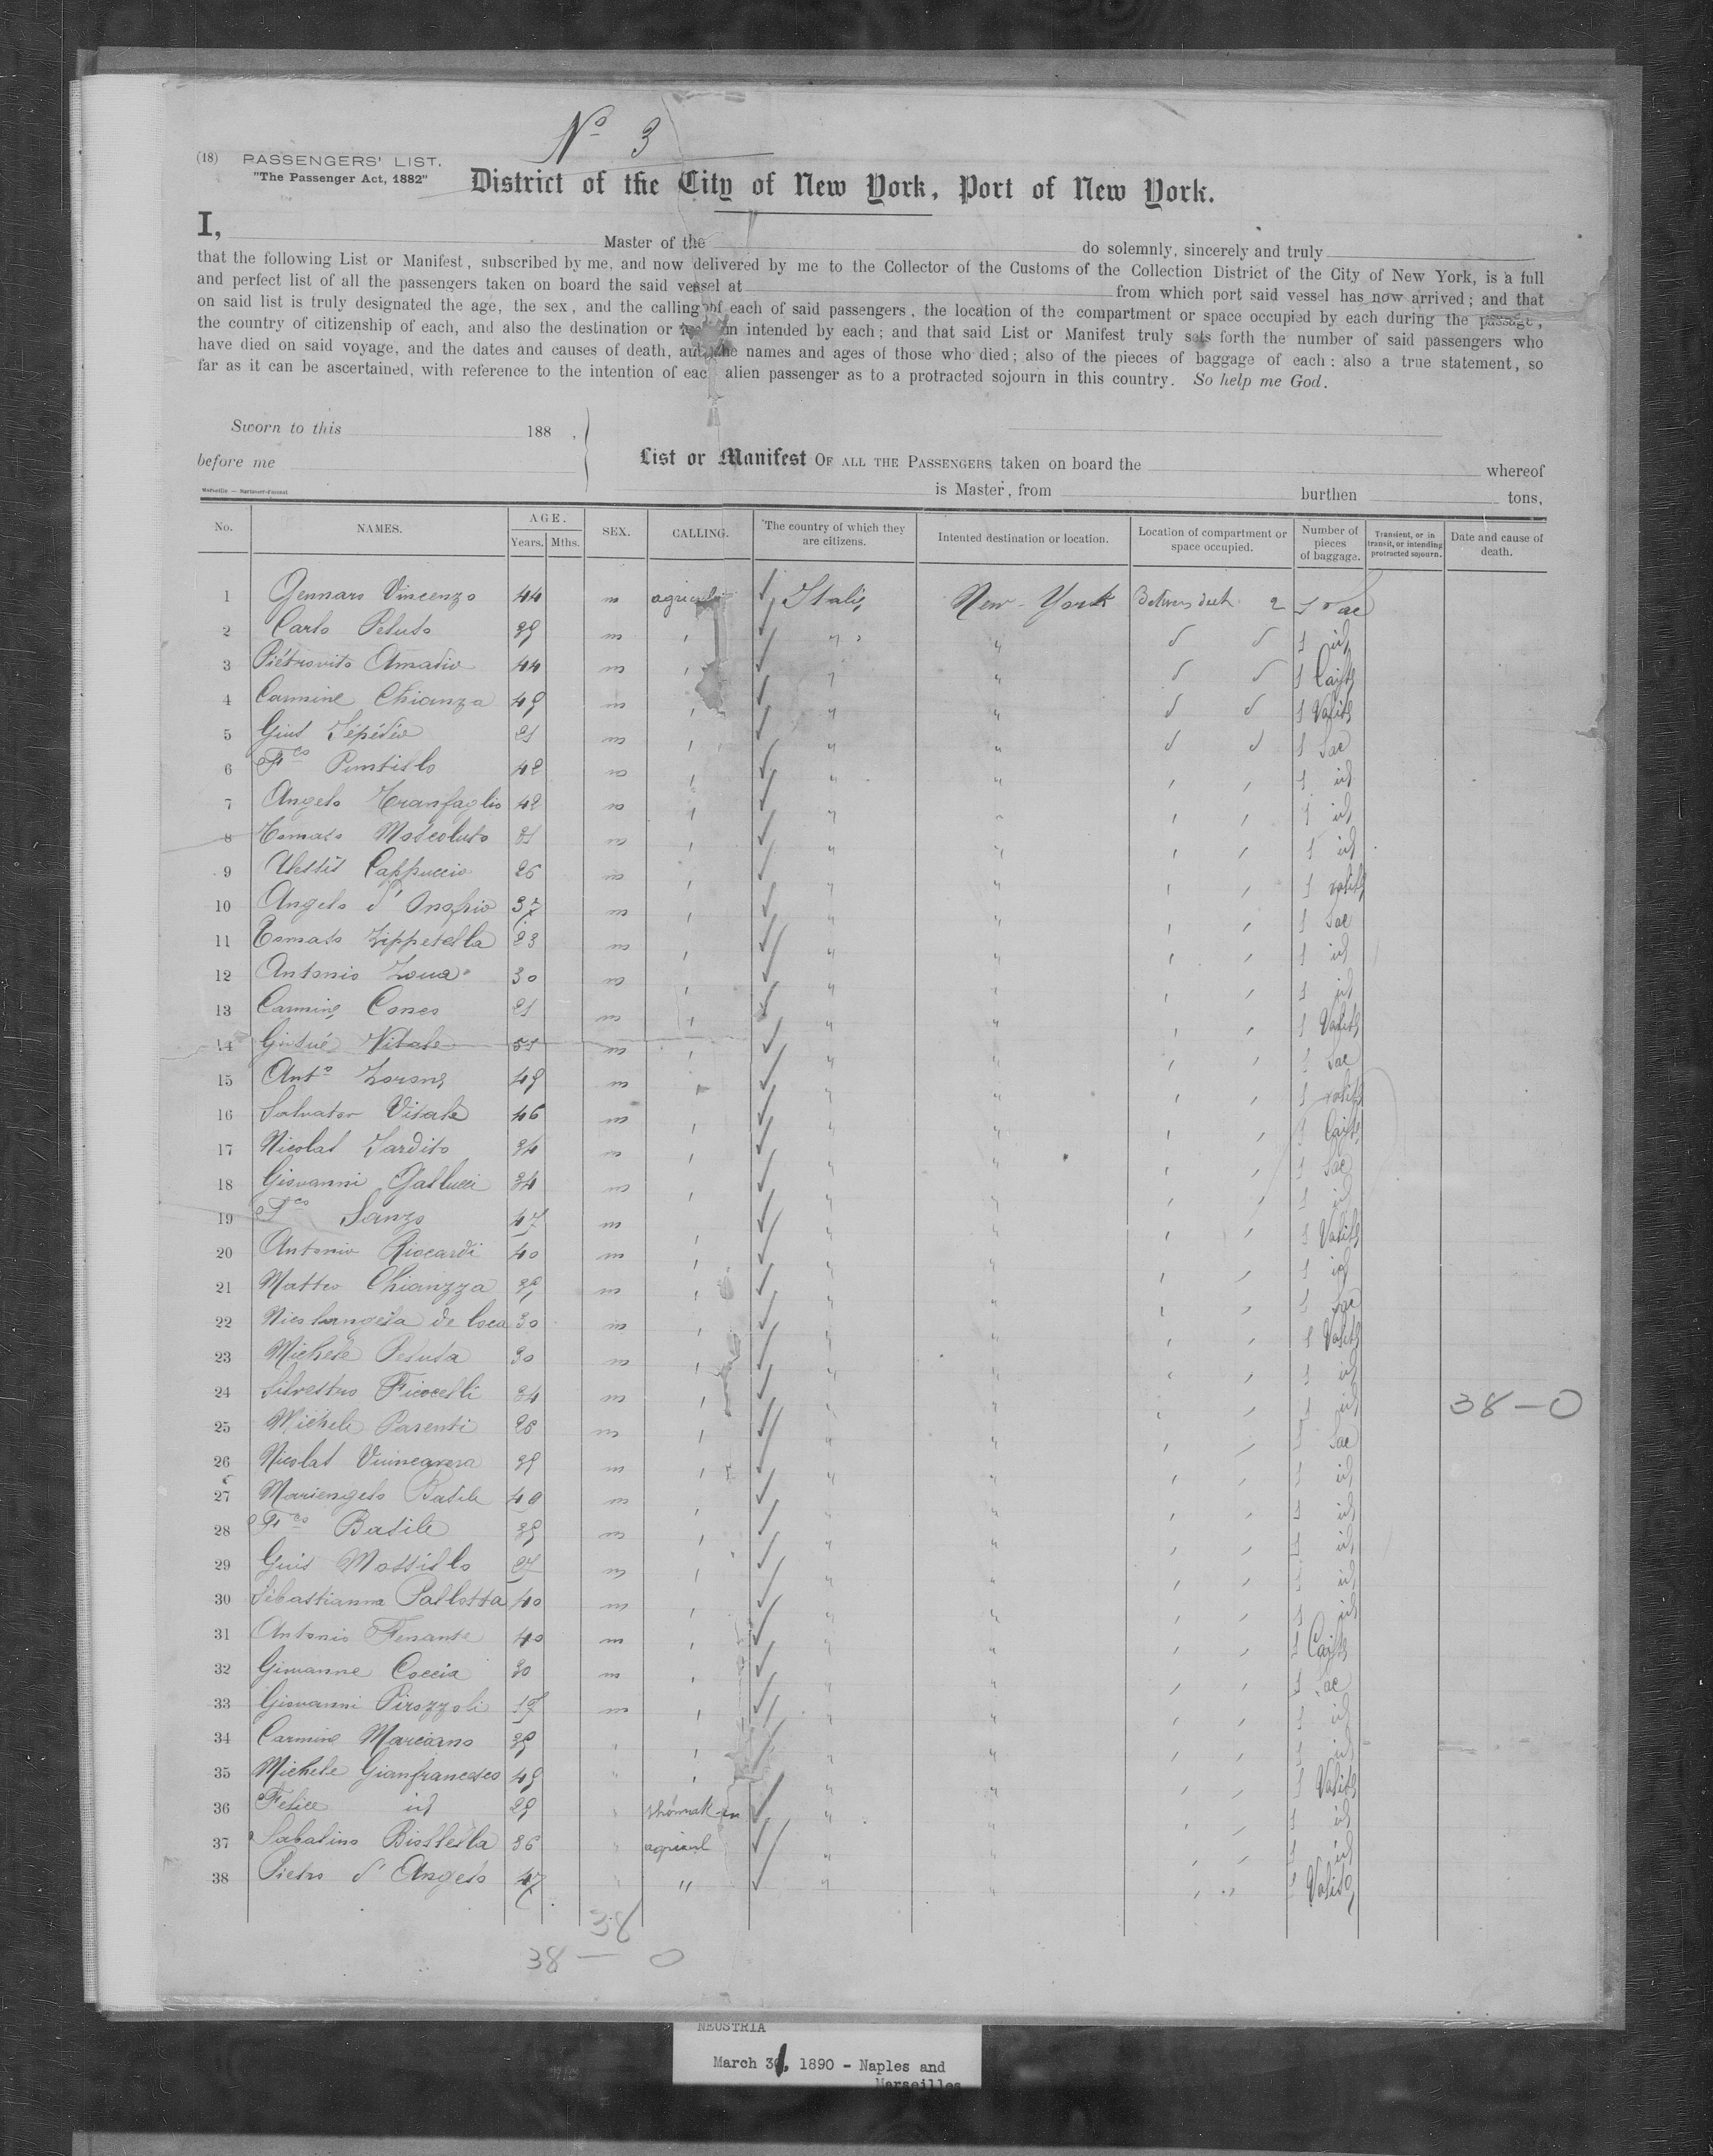 No 3
(18) PASSENGERS' LIST.
"The Passenger Act, 1882"
District of the City of New York, Port of New York.
I, Master of the do solemnly, sincerely and truly
that the following List or Manifest, subscribed by me, and now delivered by me to the Collector of the Customs of the Collection District of the City of New York, is a full
and perfect list of all the passengers taken on board the said vessel at from which port said vessel has now arrived; and that
on said list is truly designated the age, the sex, and the calling of each of said passengers, the location of the compartment or space occupied by each during the passage,
the country of citizenship of each, and also the destination or intended by each; and that said List or Manifest truly sets forth the number of said passengers who
have died on said voyage, and the dates and causes of death, and the names and ages of those who died; also of the pieces of baggage of each: also a true statement, so
far as it can be ascertained, with reference to the intention of each alien passenger as to a protracted sojourn in this country. So help me God.
Sworn to this 188 ,
before me
List or Manifest OF ALL THE PASSENGERS taken on board the whereof
is Master, from burthen tons,
No. NAMES. AGE. Years. Mths. SEX. CALLING. The country of which they are citizens. Intented destination or location. Location of compartment or space occupied. Number of pieces of baggage. Transient, or in transit, or intending protracted sojourn. Date and cause of death.
1 Gennaro Vincenzo 44 m Italie New-York 2
2 Carlo Peluso 39 m " " 1 id
3 Pietrovito Amadio 44 m " " 1
4 Carmine Chianza 49 m " " 1 Valise
5 21 m " " 1 Sac
6 Fco 42 m " " 1 id
7 Angelo Tranfaglio 42 m " " 1 id
8 Tomaso 31 m " " 1 id
9 Cappuccio 26 m " " 1 valise
10 Angelo d'Onofrio 37 m " " 1 Sac
11 Tomaso Zippetella 23 m " " 1 id
12 Antonio 30 m " " 1 id
13 Carmine 21 m " " 1 Valise
14 Vitale 51 m " " 1 Sac
15 Anto 49 m " " 1 valise
16 Salvator Vitale 46 m " " 1
17 Nicolas 34 m " " 1 Sac
18 Giovanni Gallucci 34 m " " 1 id
19 Fco Sanzo 47 m " " 1 Valise
20 Antonio Riccardi 40 m " " 1 id
21 Matteo Chianzza 39 m " " 1 Sac
22 Nicolangela de Loca 30 m " " 1 Valise
23 Michele Peluso 30 m " " 1 id
24 Silvestro Ficocelli 34 m " " 1 id 38-0
25 Michele Parenti 28 m " " 1 Sac
26 Nicolas 39 m " " 1 id
27 Mariengelo Basile 40 m " " 1 id
28 Fco Basile 39 m " " 1 id
29 Gius Massillo 27 m " " 1 id
30 Sebastianna Pallotta 40 m " " 1 id
31 Antonio 40 m " " 1
32 Giovanne Coccia 30 m " " 1 Sac
33 Giovanni Pirozzoli 17 m " " 1 id
34 Carmine Marcarno 39 " " " 1 id
35 Michele Gianfrancesco 49 " " " 1 Valise
36 Felice id 29 " " " 1 id
37 Sabatino 36 " agricul " " 1 id
38 Pietro d'Angelo 47 " " " " 1 Valise
38
38 — 0
NEUSTRIA
March 31, 1890 - Naples and
Marseilles